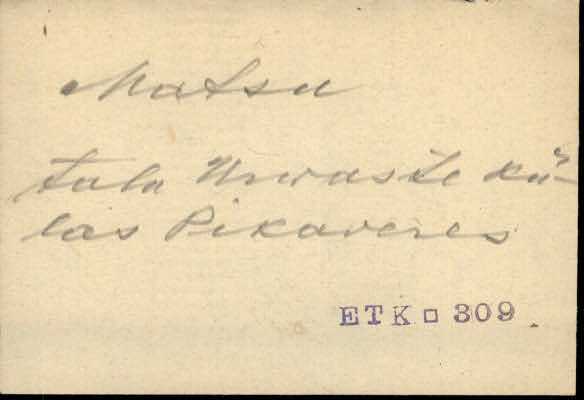 Matsu
talu Urvaste kü-
las Pikaveres
ETK □ 309